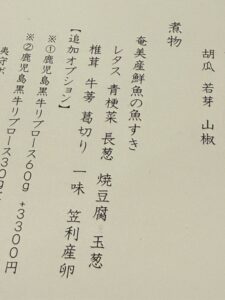 胡瓜 若芽 山椒
煮物
奄美産鮮魚の魚すき
レタス 青梗菜 長葱 焼豆腐 玉葱
椎茸 牛蒡 葛切り 一味 笠利産卵
【追加オプション】
※①鹿児島黒牛リブロース60g +3300円
※②鹿児島黒牛リブロース30g